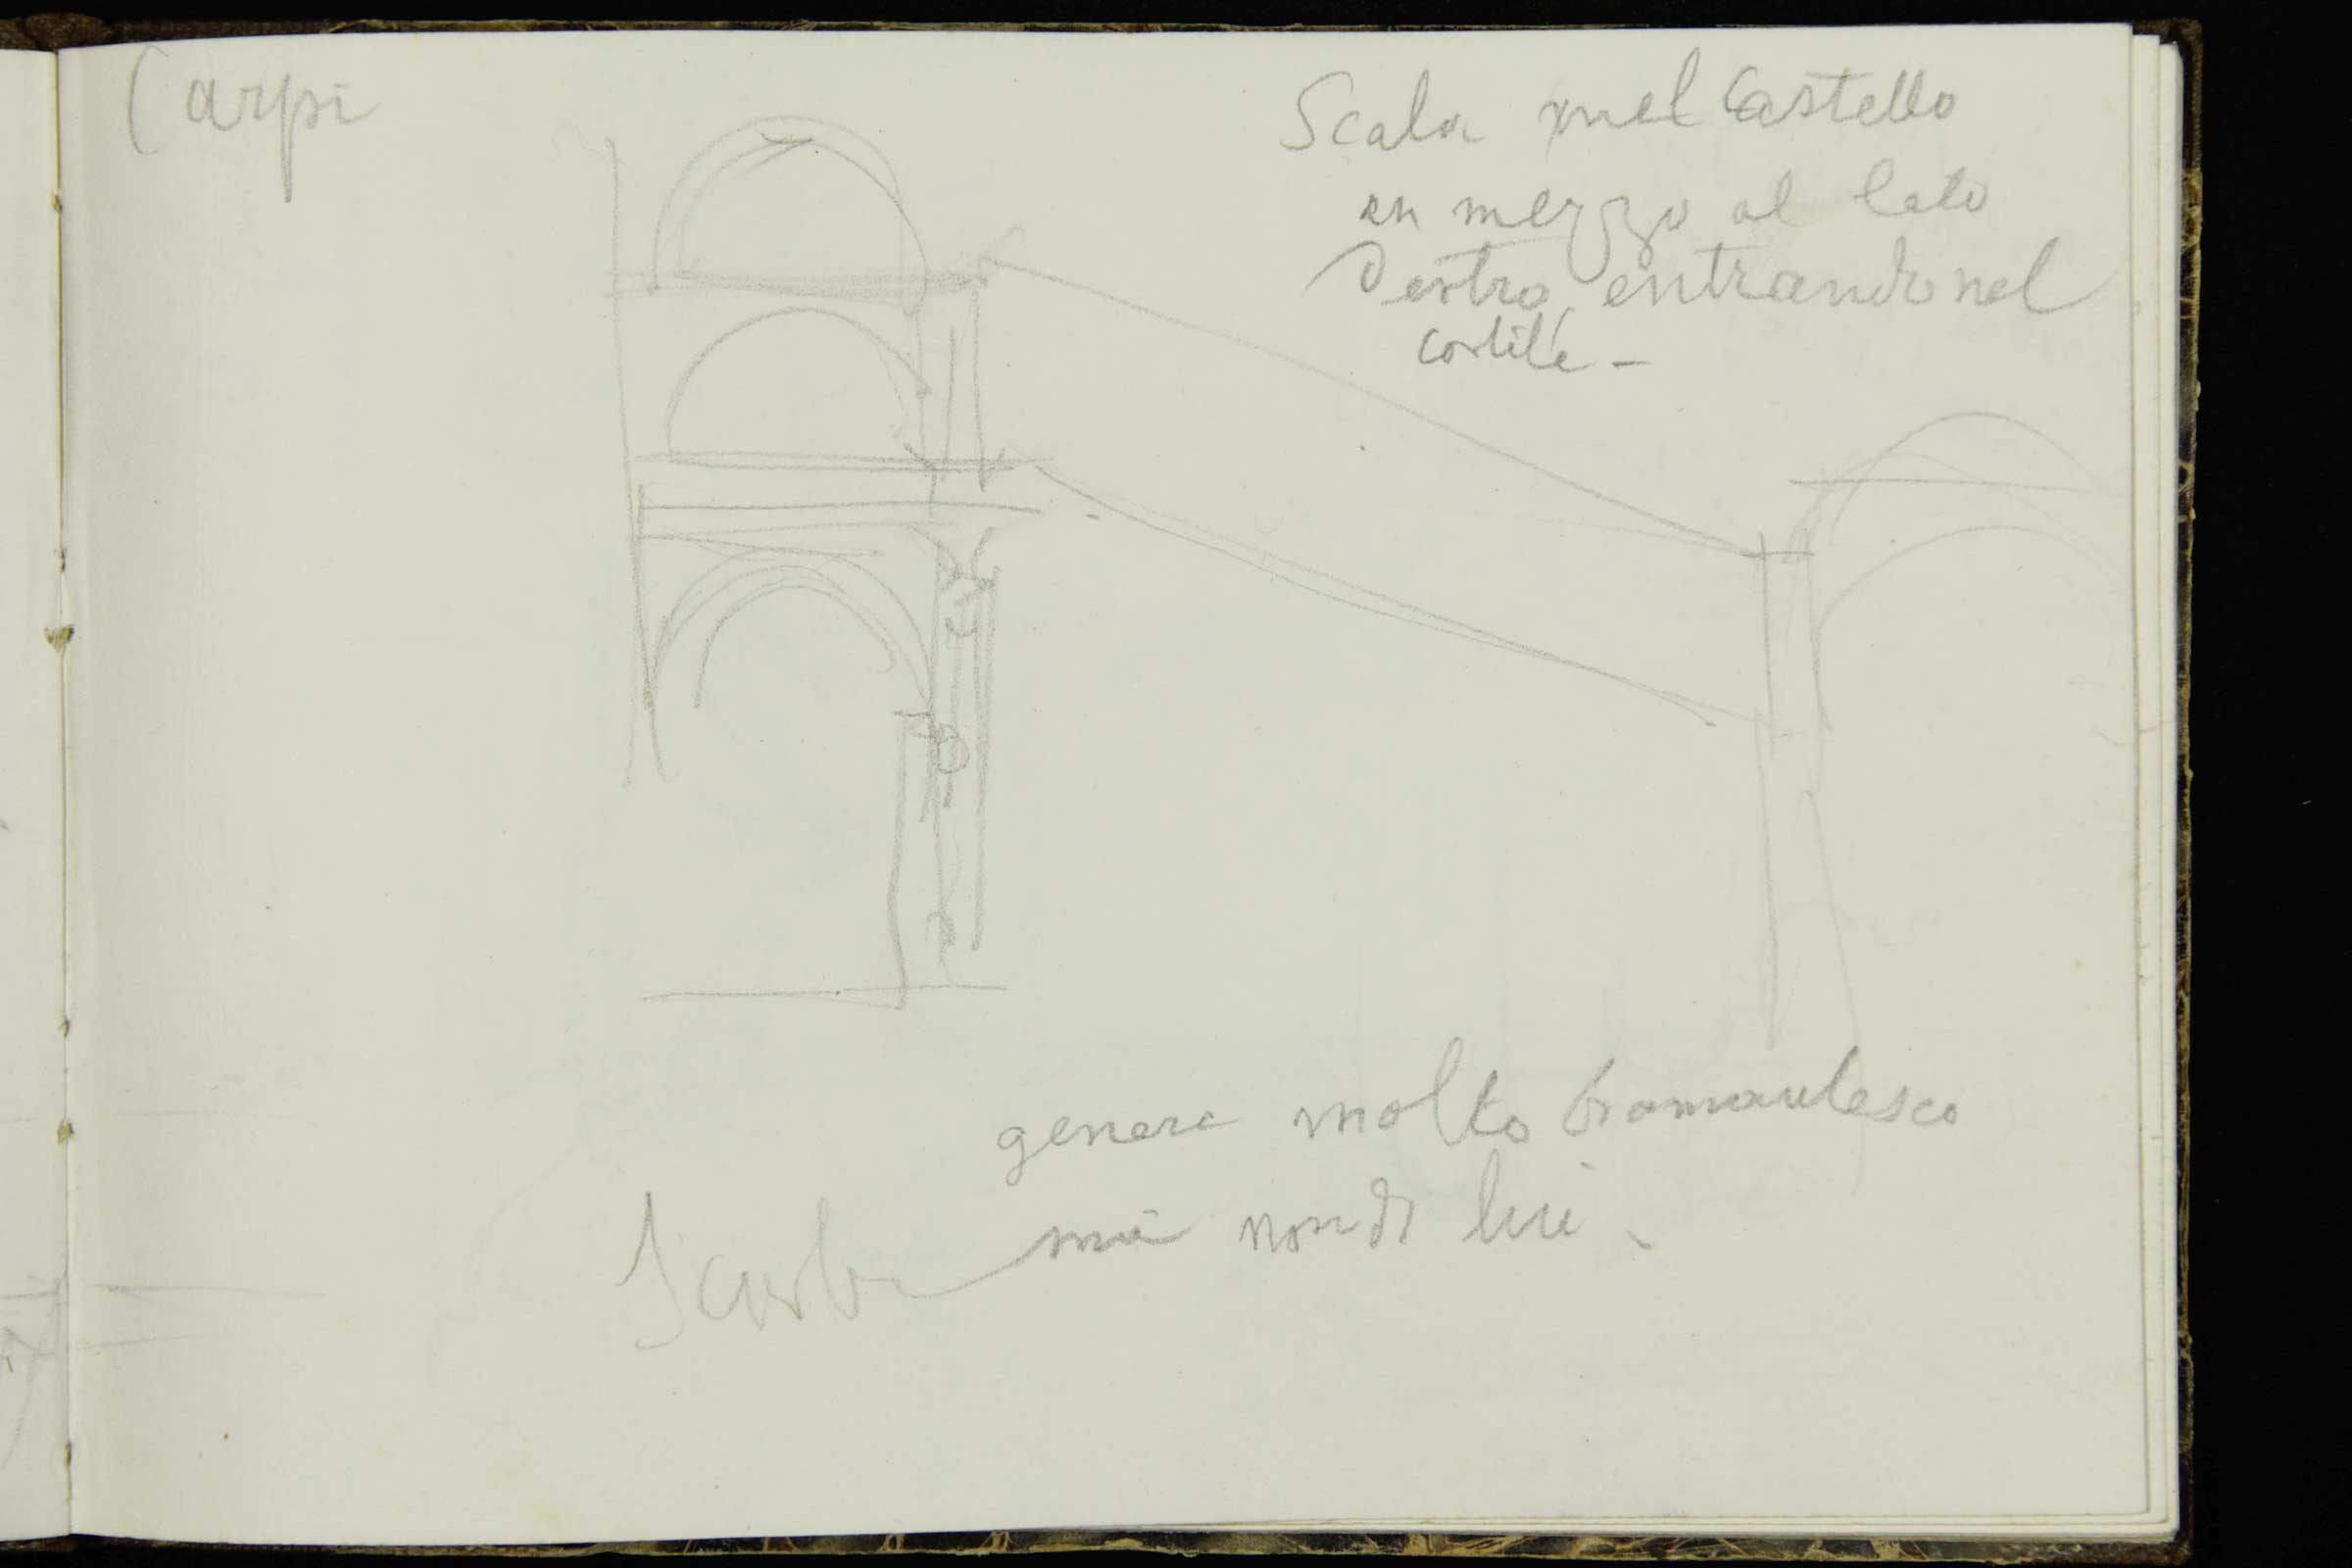 Carpi
Scala nel Castello
in mezzo al lato
destro, entrando nel
cortile –
genere molto bramantesco
ma non di lui –